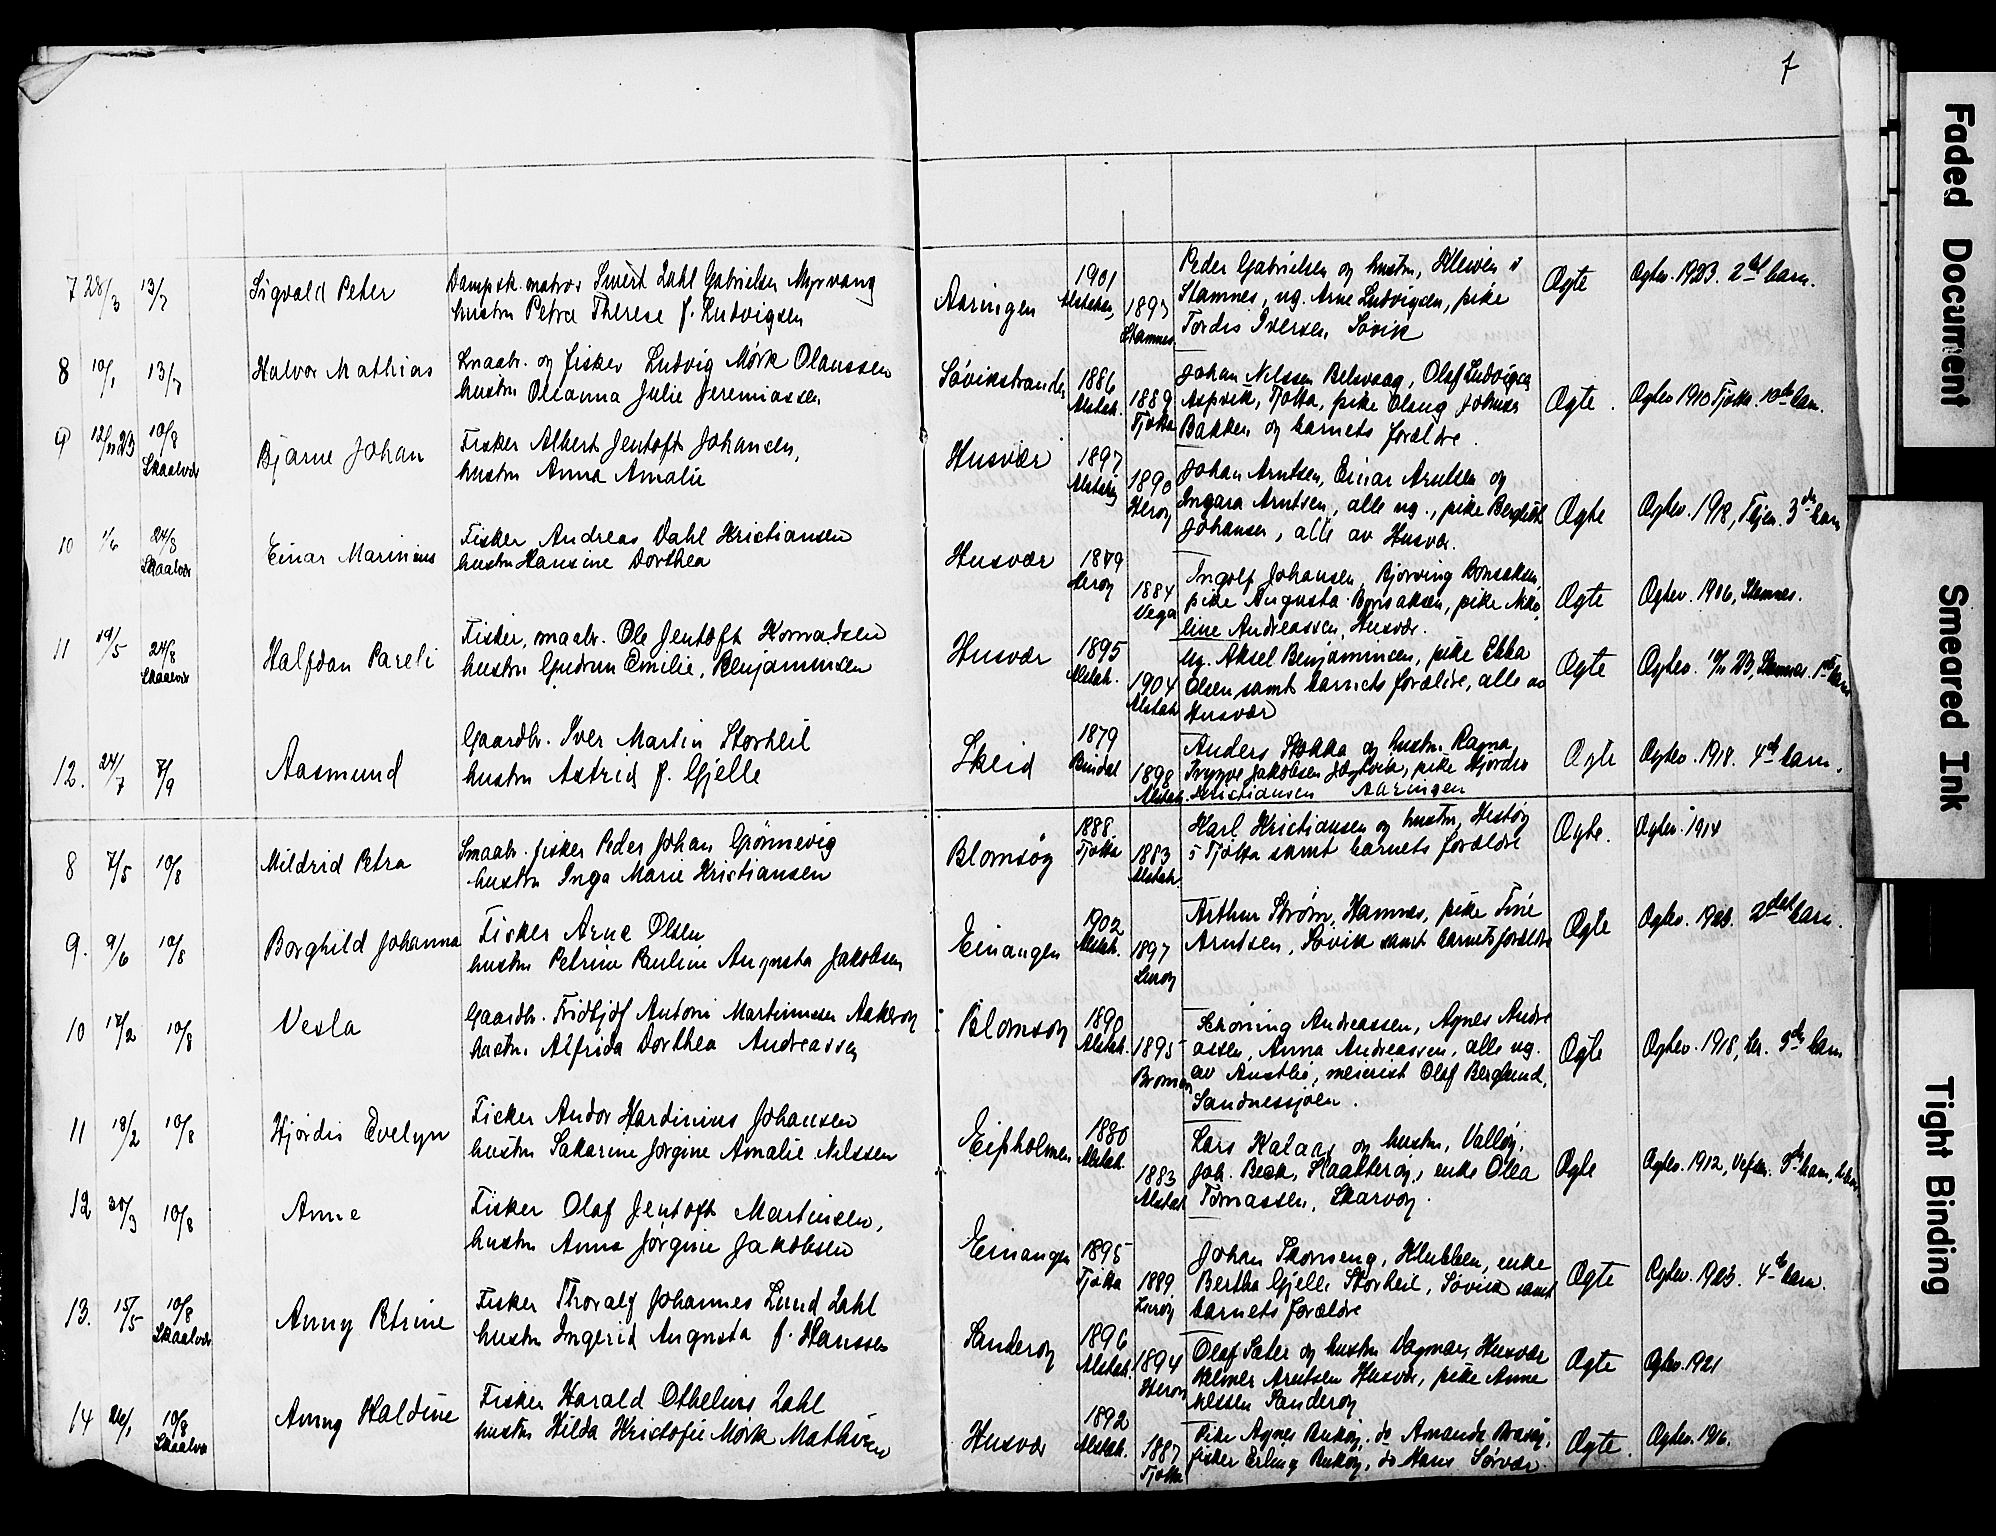 7
7 28/3 13/7 Sigvald Peter
Dampsk. matros Sivert Dahl Gabrielsen Myrvang
hustru Petra Therese f. Ludvigsen
Aaringen
1901
1893
Stamnes
Peder Gabrielsen og hustru,
Stamnes, ug. Arne Ludvigsen, pike
Tordis Iversen, Søvik
Ægte
Ægtev. 1923. 2det barn.
8 10/1 13/7 Halvor Mathias
Smaabr. og fisker Ludvig Mørk Olaussen
hustru Oleanna Julie Jeremiassen
Søvikstranden
1886
Alstah.
1889
Tjøtta
Johan Nilssen Belsvaag, Olaf Ludvigsen
Aspvik, Tjøtta, pike Olaug Johnsen
Bakken og barnets forældre.
Ægte.
Ægtev 1910 Tjøtta. 10de barn.
9 12/11 23 10/8
Skaalvær
Bjarne Johan
Fisker Albert Jentoft Johansen,
hustru Anna Amalie
Husvær
1897
1890
Herøy
Johan Arntsen, Einar Arntsen og
Ingara Arntsen, alle ug., pike Bergliot
Johansen, alle av Husvær.
Ægte
Ægtev. 1918, 3de barn
10 1/6 24/8
Skaalvær
Einar Marinius
Fisker Andreas Dahl Kristiansen
hustru Hansine Dorthea
Husvær
1879
Herøy
1884
Vega
Ingolf Johansen, Bjørving Bonsaksen,
pike Augusta Bonsaksen, pike Niko
line Andreassen, Husvær.
Ægte
Ægtev. 1906, Stamnes.
11 19/5 24/8
Skaalvær
Halfdan Pareli
Fisker, smaabr. Ole Jentoft Konradsen
hustru Gudrun Emilie, Benjaminsen
Husvær
1895
Alstah.
1904
Alstah
Ug. Aksel Benjaminsen, pike Ebba
Olsen samt barnets forældre, alle av
Husvær
Ægte
Ægtev. 11/11 23, Stamnes. 1ste barn
12. 24/7 7/9 Aasmund
Gaardbr. Iver Martin Storheil
hustru Astrid f. Gjelle
Skeid
1879
Bindal
1898
Alstah.
Anders Stokka og hustru Ragna,
Trygve Jakobsen Jægtvik, pike Hjørdis
Kristiansen Aaringen
Ægte
Ægtev. 1918. 4de barn.
8 7/5 10/8 Mildrid Petra
Smaabr. fisker Peder Johan Grønnevig
hustru Inga Marie Kristiansen
Blomsøy
1888.
Tjøtta
1883
Alstah.
Karl Kristiansen og hustru, Hestøy
i Tjøtta samt barnets forældre
Ægte.
Ægtev. 1914
9. 9/6 10/8 Borghild Johanna
Fisker Arne Olsen
hustru Petrine Pauline Augusta Jakobsen
Einangen
1902
Alstah.
1897
Lurøy
Arthur Strøm, Hamnes, pike Tine
Arntsen, Søvik samt barnets forældre
Ægte
Ægtev. 1923. 2det barn.
10 17/2 10/8 Vesla
Gaardbr. Fridtjof Antoni Martinussen Aakerøy
hustru Alfrida Dorthea Andreassen
Blomsøy
1890
Alstah.
1895
Schøning Andreassen, Agnes Andre
assen, Anna Andreassen, alle ug.
av Austbø, meierist Olaf Berglund,
Sandnessjøen.
Ægte
Ægtev. 1918, 3de barn
11 18/2 10/8 Hjørdis Evelyn
Fisker Andor Hardinius Johansen
hustru Sakarine Jørgine Amalie Nilssen
1880
Alstah.
1883
Alstah.
Lars Kalaas og hustru, Valløy,
Joh. Beck, enke Olea
Tomassen, Skarvøy.
Ægte
Ægtev. 1912, barn,
12 30/3 10/8 Anne
Fisker Olaf Jentoft Martinsen,
hustru Anna Jørgine Jakobsen
Einangen
1895
Tjøtta
1889
Lurøy
Johan Skonseng, Klubben, enke
Bertha Gjelle Storheil, Søvik samt
barnets forældre
Ægte
Ægtev. 1923. 4de barn.
13. 15/5 10/8
Skaalvær
Anny Petrine
Fisker Thoralf Johannes Lund Dahl
hustru Ingerid Augusta f. Hanssen
Sanderøy
1896
Alstah.
1894
Herøy
Olaf Sæter og hustru Dagmar, Husvær
Helmer Arntsen Husvær, pike Anne
Nilssen Sanderøy
Ægte
Ægtev. 1921
14 26/1 10/8
Skaalvær
Anny Haldine
Fisker Harald Othelius Dahl
hustru Hilda Kristofie Mørk Mathisen
Husvær
1892
Alstah.
1887
Tjøtta
Pike Agnes Bukøy, do Amanda Brasøy,
fisker Erling Bukøy, do Hans Sørvær.
Ægte.
Ægtev. 1916.
Faded Document
Smeared Ink
Tight Binding